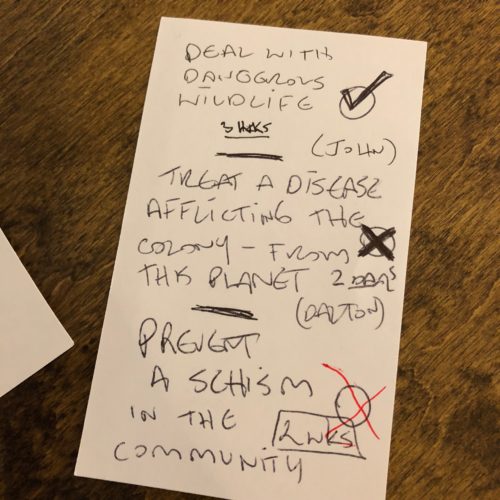 DEAL WITH
DANGEROUS
WILDLIFE
3 WKS
(JOHN)
TREAT A DISEASE
AFFLICTING THE
COLONY - FROM
THIS PLANET 2 DAYS
(DALTON)
PREVENT
A SCHISM
IN THE
2 WKS
COMMUNITY